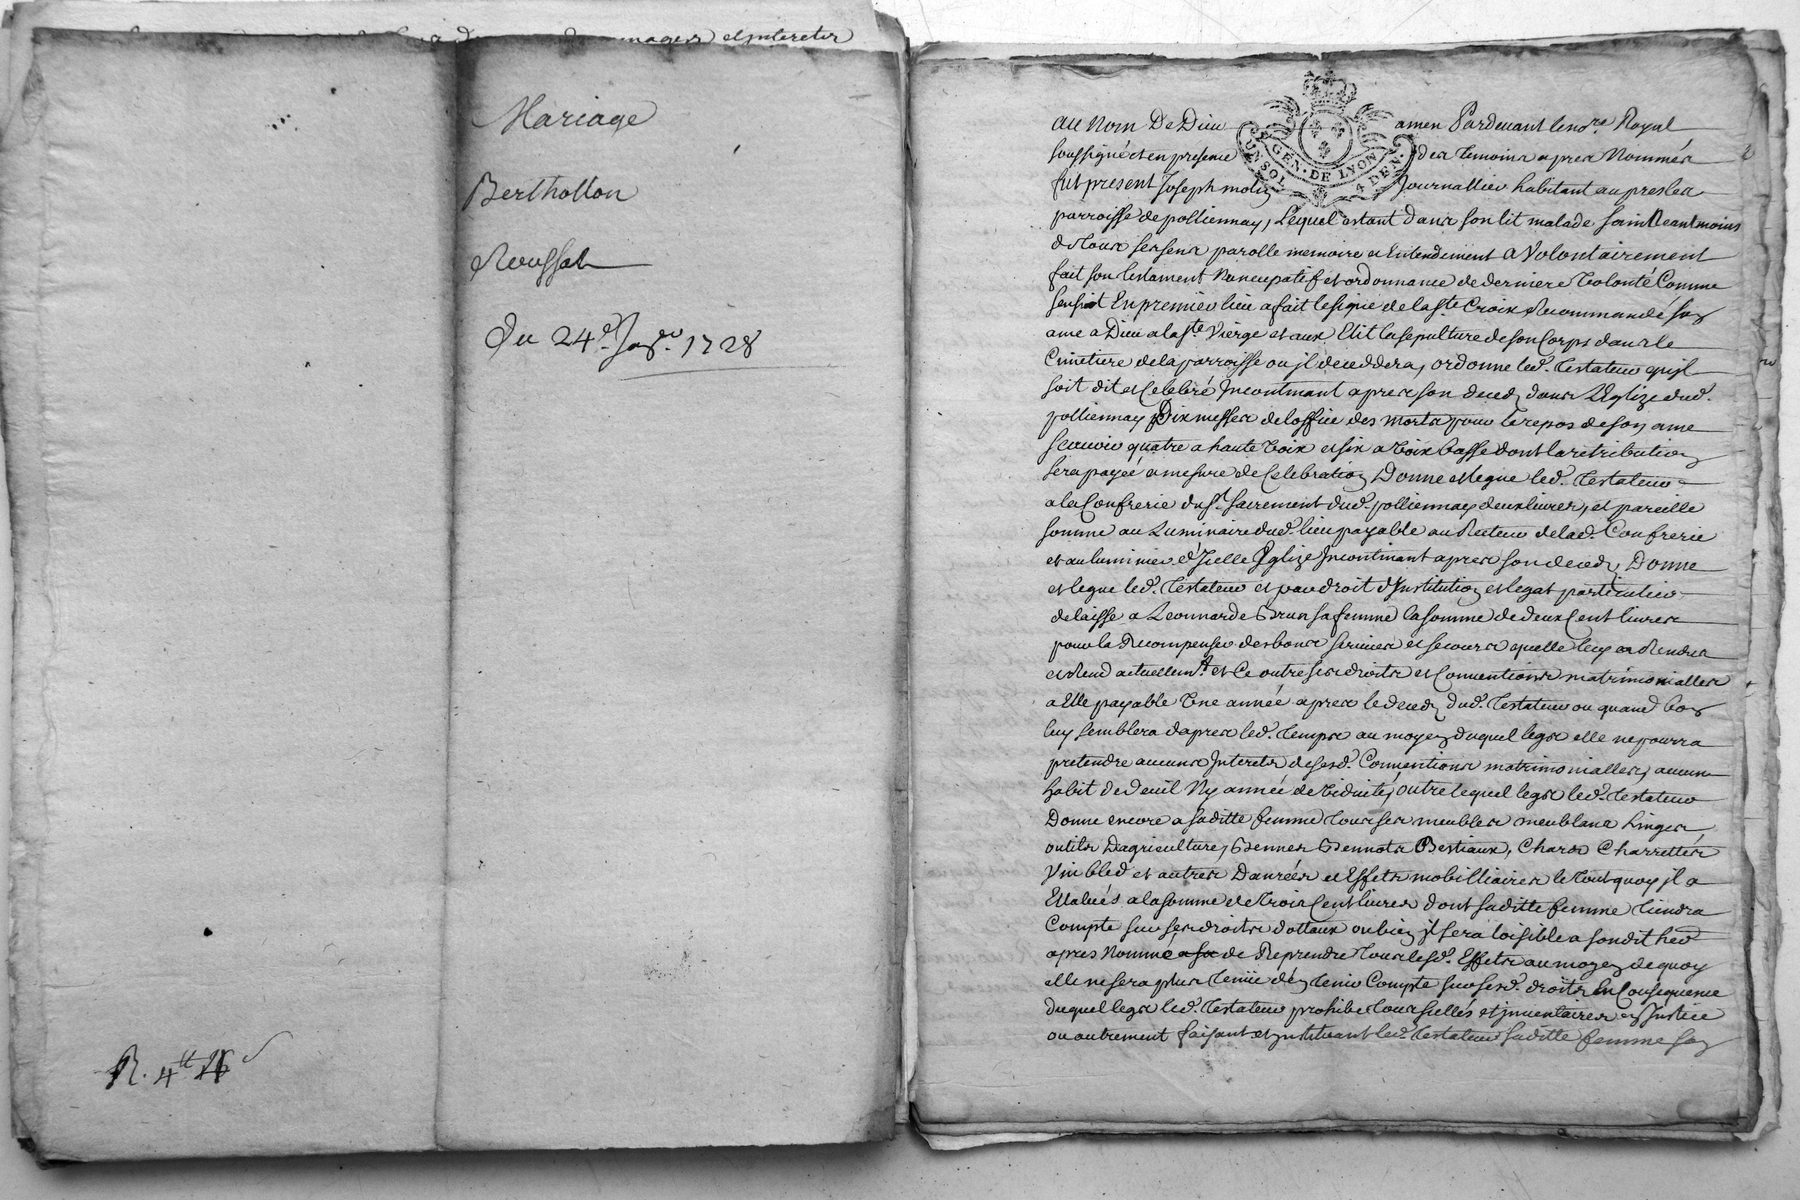 Mariage
Berthollon
Roussat
Du 24e. Janr. 1728
R. 4tt
GEN. DE LYON
UN SOL 4 DEN.
au nom De Dieu amen Pardevant le nore. Royal
soussigné et en presence des temoins apres Nommés
fut present Joseph Journallier habitant au pres les
parroisse de polliennay, Lequel estant dans son lit malade sain Neantmoins
de tous ses sens parolle memoire et Entendement a Volontairement
fait son testament Nuncupatif et ordonnance de derniere Volonté Comme
sensuit En premier lieu a fait le signe de la ste Croix Recommandé son
ame a Dieu a la ste Vierge et aux Elit la sepulture de son Corps dans le
Cimetiere de la parroisse ou jl deceddera, ordonne led. testateur qu'jl
soit dit et Celebré Jncontinant apres son deced dans L'Eglize dud.
polliennay Dix messes de loffice des morts pour le repos de son ame
scavoir quatre a haute voix et six a voix basse dont la retribution
sera payée a mesure de Celebration Donne et legue led. testateur
a la Confrerie du st. sacrement dud. polliennay deux livres, et pareille
somme au Luminaire dud. lieu payable au Recteur de lad. Confrerie
et au luminier d'Jcelle Eglize Jncontinant apres son deced Donne
et legue led. testateur et par droit d'Institution et legat particulier
delaisse a Leonnarde Brun sa femme la somme de deux Cent livres
pour la Recompenser des bons services et secours quelle luy a Rendus
et Rend actuellemt. et Ce outre ses droits et Conventions matrimonialles
a Elle payable Une année apres le deced dud. testateur ou quand bon
luy semblera dapres led. temps au moyen duquel legs elle ne pourra
pretendre aucuns Jnterets de sesd. Conventions matrimonialles, aucun
habit de deuil Ny année de viduité, outre lequel legs led. testateur
Donne encore a saditte femme tous ses meubles meublans Linges
outils Dagriculture, Bennes Bennots Bestiaux, Chars Charrettes
Vin bled et autres Danrées et Effets mobilliaires le tout quoy jl a
Evalués a la somme de trois Cent livres dont saditte femme tiendra
Compte sur ses droits dottaux ou bien jl sera loisible a sondit her
apres Nommé de Reprendre tous lesd. Effets au moyen de quoy
elle ne sera plus tenüe d'en tenir Compte sur sesd. droits En Consequence
duquel legs led. testateur prohibe tous sellés et jnventaires en Justice
ou autrement faisant et jnstituant led. testateur saditte femme son